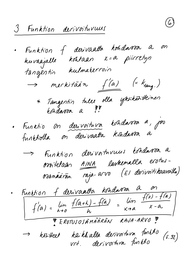 6
3 Funktion derivoituvuus
• Funktion f derivaatta kohdassa a on
kuvaajalle kohtaan x=a piirretyn
tangentin kulmakerroin
→ merkitään f'(a) (= k tang.)
* Tangentin tulee olla yksikäsitteinen
kohdassa a !!
• Funktio on derivoituva kohdassa a, jos
funktiolla on derivaatta kohdassa a
→ Funktion derivoituvuus kohdassa a
osoitetaan AINA laskemalla erotus-
osamäärän raja-arvo (EI derivointikaavoilla)
• Funktion f derivaatta kohdassa a on
f'(a) = lim h→0 f(a+h) - f(a) / h = lim x→a f(x) - f(a) / x - a
↑ EROTUSOSAMÄÄRÄN RAJA-ARVO ↑
→ kaikkialla derivoituva funktio
vrt. derivoituva funktio